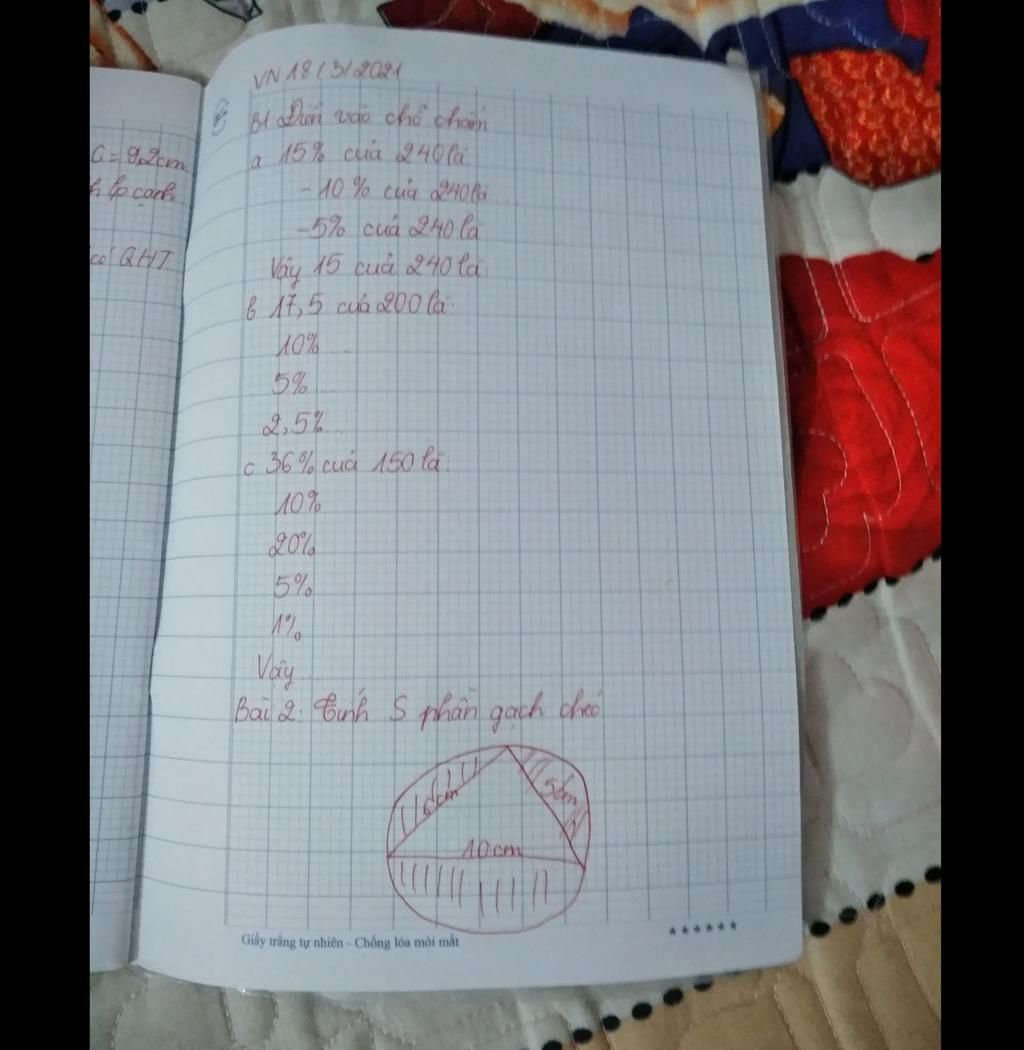 C = 9,2cm
lp cạnh
có QHT
VN 18/3/2021
B1 Điền vào chỗ chấm
a 15% của 240 là
- 10% của 240 là
- 5% của 240 là
Vậy 15 của 240 là
b 17,5 của 200 là:
10% ...
5% ...
2,5% ...
c 36% của 150 là:
10%
20%
5%
1%
Vậy ...
Bài 2: Tính S phần gạch chéo
6cm
5cm
10cm
Giấy trắng tự nhiên - Chống lóa mỏi mắt